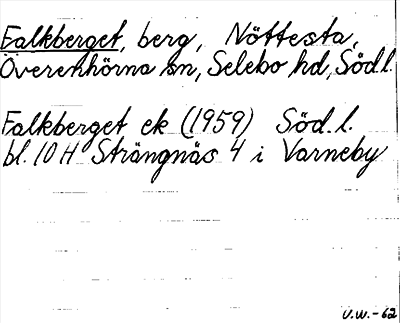 Falkberget, berg, Nöttesta,
Överenhörna sn, Selebo hd, Söd.l.
Falkberget ek (1959) Söd.l.
bl. 10 H Strängnäs 4 i Varneby
U.W.-62